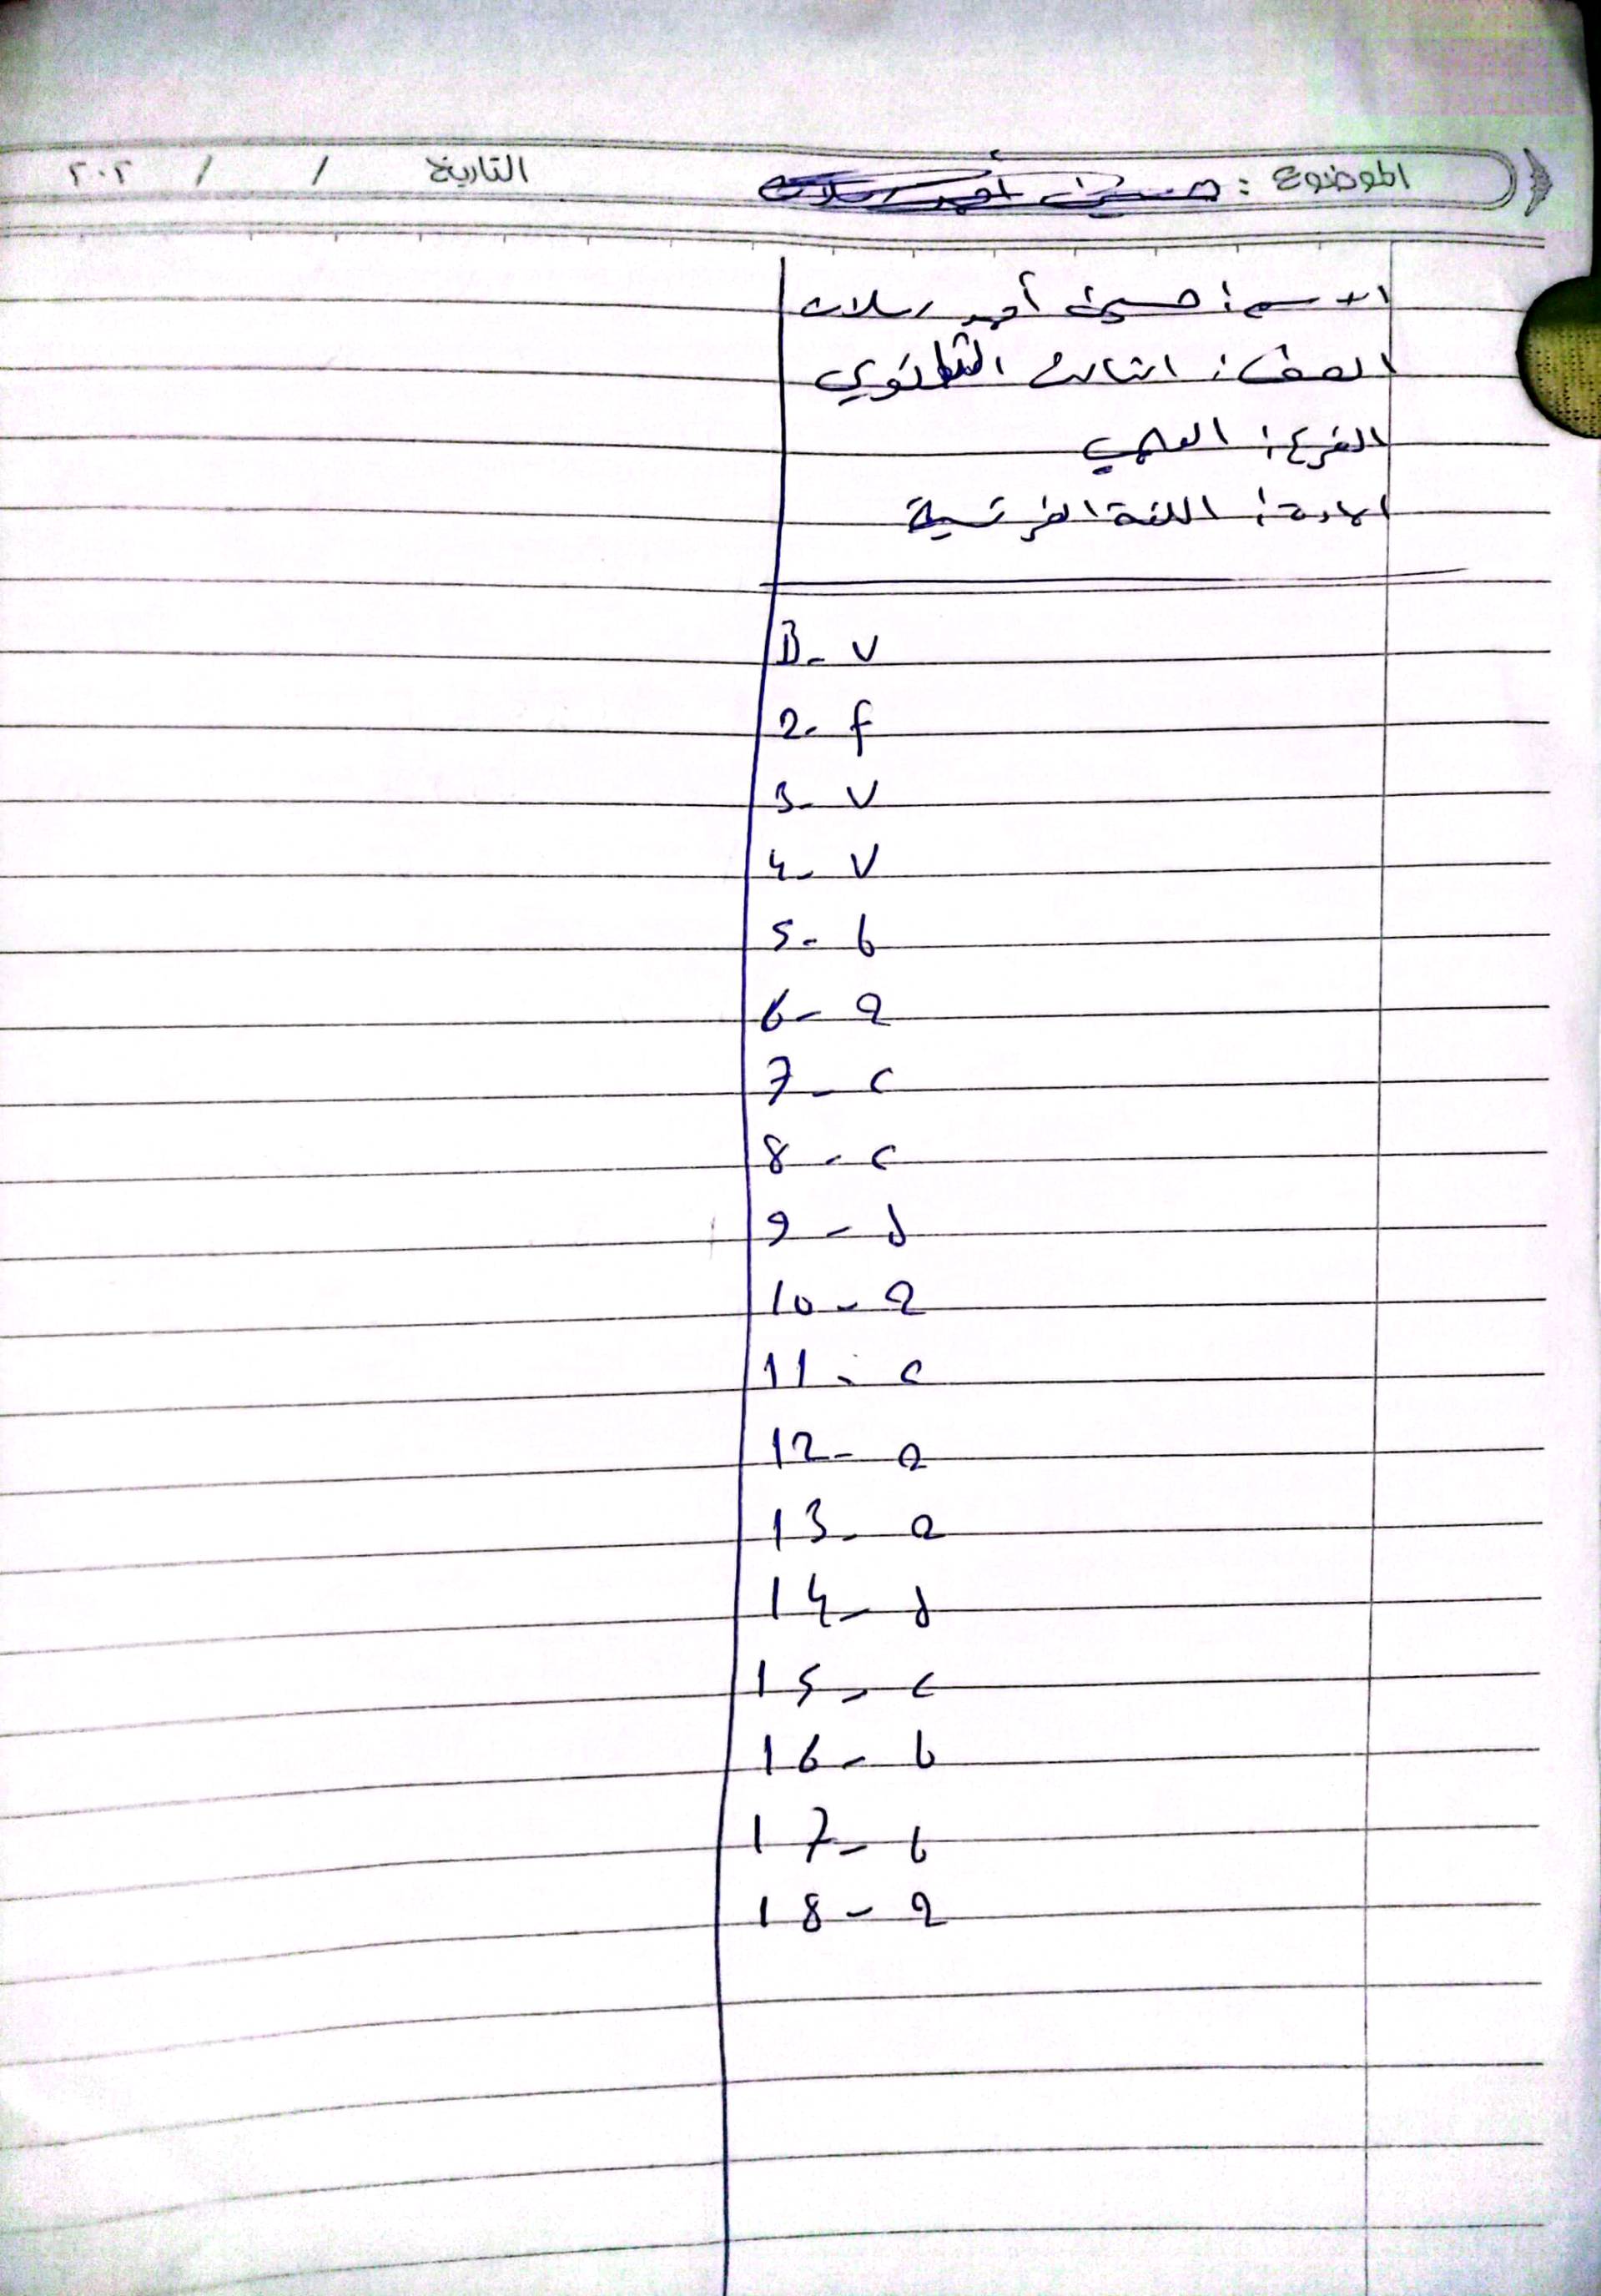 الموضوع : حسين أحمد رسلان التاريخ / / ٢٠٢
الاسم: حسين أحمد رسلان
الصف: الثالث الثانوي
الفرع: العلمي
المادة: اللغة الفرنسية
1- V
2- f
3- V
4- V
5- b
6- a
7- c
8- c
9- d
10- a
11- c
12- a
13- a
14- d
15- c
16- b
17- b
18- a